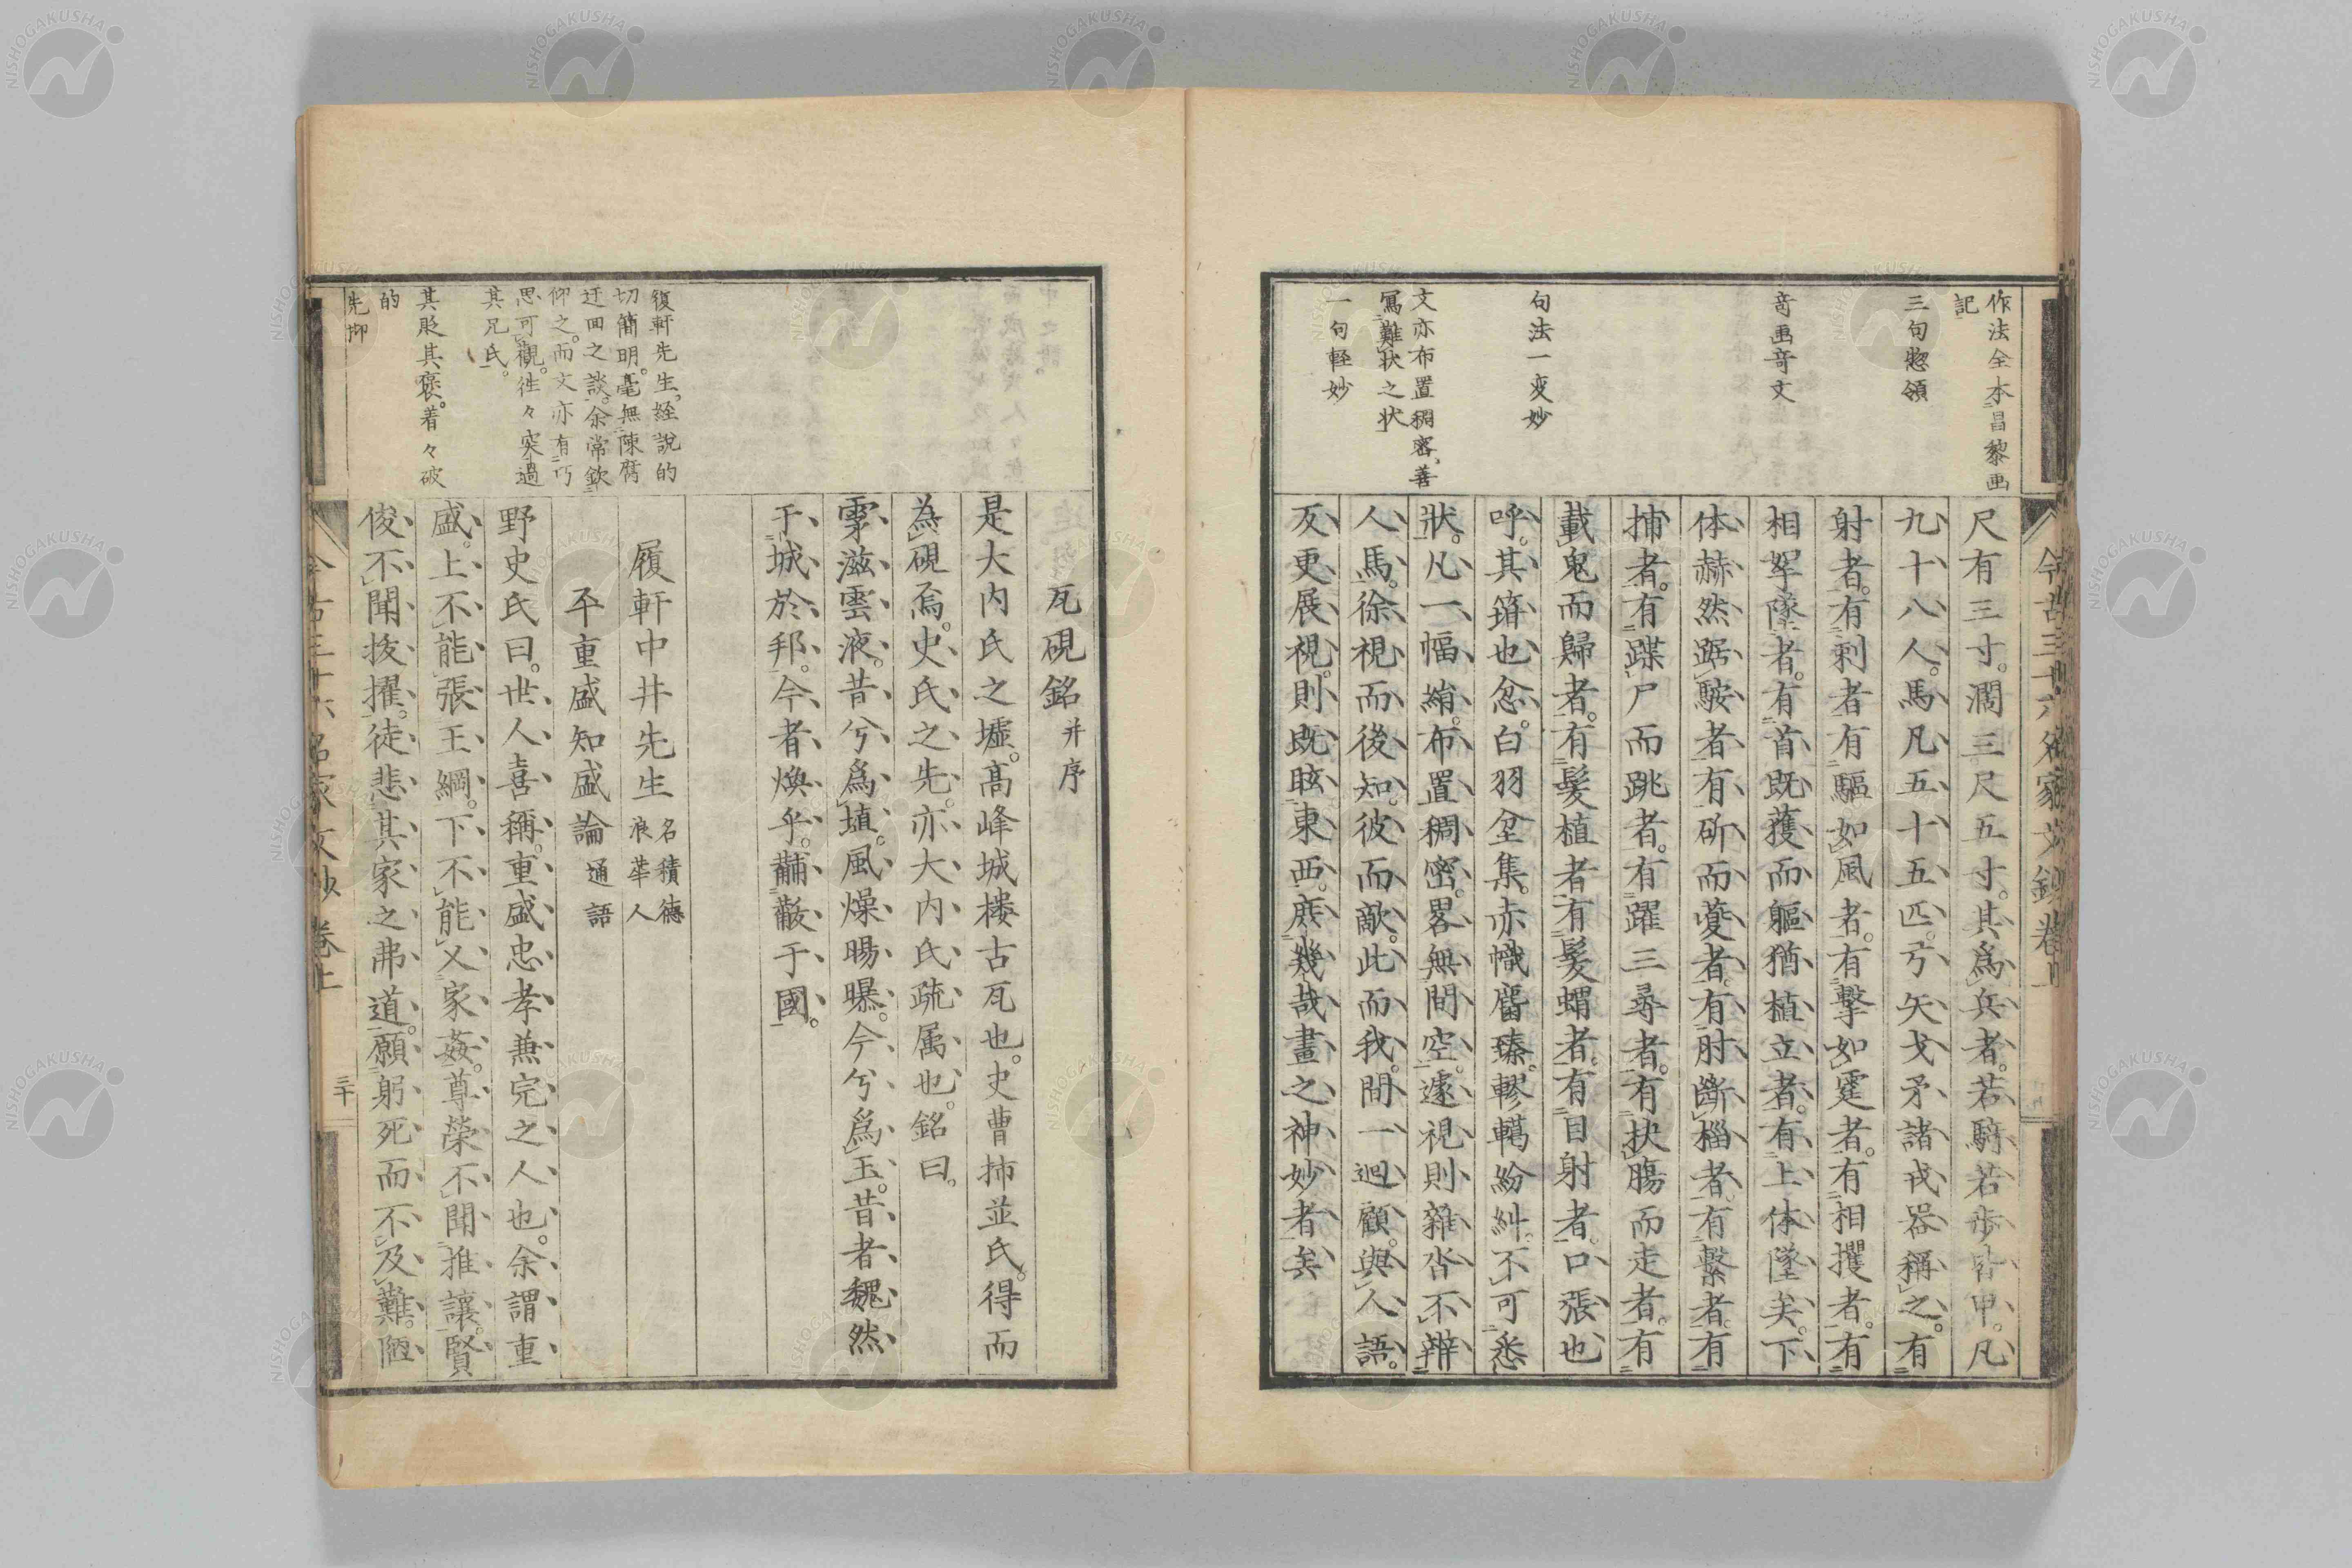 作法全本昌黎画
記
三句惣領
奇画奇文
句法一変妙
文亦布置稠密善
冩難状之状
一句軽妙
尺有三寸。濶三尺五寸。其爲兵者。若騎若歩皆甲。凡
九十八人。馬凡五十五匹。弓矢戈矛諸戎器稱之。有
射者。有剌者有驅如風者。有撃如霆者。有相攫者。有
相牽墜者。有首既獲而軀猶植立者。有上体墜矣。下
体赫然踞鞍者。有斫而躉者。有肘斷椔者。有繋者。有
捕者。有蹀尸而跳者。有躍三尋者。有抉膓而走者。有
載鬼而歸者。有髮植者有髮蝟者。有目射者。口張也
呼。其箝也忿。白羽坌集。赤幟麕臻轇轕紛糾。不可悉
狀。凡一幅綃。布置稠密。畧無間空。遽視則雜沓不辨
人馬。徐視而後知。彼而敵。此而我。間一迴顧。與人語。
反更展視。則既眩東西。庶幾哉畫之神妙者矣
瓦硯銘并序
是大内氏之墟。高峰城楼古瓦也。史曹𣏌並氏。得而
為硯焉。史氏之先。亦大内氏疏属也。銘曰。
霥滋雲液。昔兮爲埴。風燥暘曝。今兮爲玉。昔者巍然
于城於邦。今者煥乎。黼黻于国。
履軒中井先生 名積德
浪華人
平重盛知盛論 通語
野史氏曰。世人喜稱。重盛忠孝兼完之人也。余謂重
盛。上不能張王綱。下不能乂家姦。尊榮不聞推讓。賢
俊不聞拔擢。徒悲其家之弗道。願躬死而不及難。陋
復軒先生。経説的
切簡明。毫無陳腐
迂回之談。余常欽
仰之。而文亦有巧
思可観。徃々突過
其兄氏。
其貶其褒。着々破
的
先抑
今古三十六名家文鈔卷上
三十
NISHOGAKUSHA